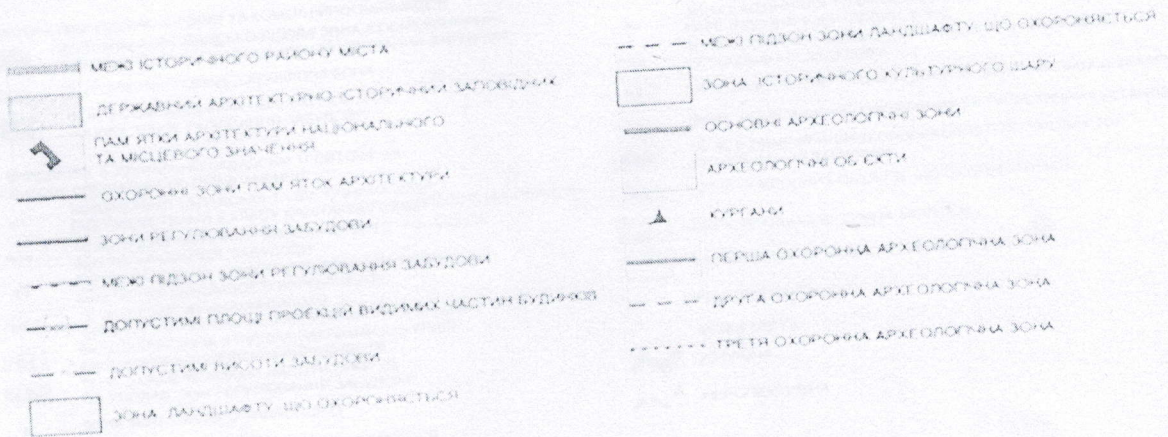 МЕЖІ ІСТОРИЧНОГО РАЙОНУ МІСТА
ДЕРЖАВНИЙ АРХІТЕКТУРНО-ІСТОРИЧНИЙ ЗАПОВІДНИК
ПАМ'ЯТКИ АРХІТЕКТУРИ НАЦІОНАЛЬНОГО
ТА МІСЦЕВОГО ЗНАЧЕННЯ
ОХОРОННІ ЗОНИ ПАМ'ЯТОК АРХІТЕКТУРИ
ЗОНИ РЕГУЛЮВАННЯ ЗАБУДОВИ
МЕЖІ ПІДЗОН ЗОНИ РЕГУЛЮВАННЯ ЗАБУДОВИ
ДОПУСТИМІ ПЛОЩІ ПРОЕКЦІЙ ВИДИМИХ ЧАСТИН БУДИНКІВ
ДОПУСТИМІ ВИСОТИ ЗАБУДОВИ
ЗОНА ЛАНДШАФТУ, ЩО ОХОРОНЯЄТЬСЯ
МЕЖІ ПІДЗОН ЗОНИ ЛАНДШАФТУ, ЩО ОХОРОНЯЄТЬСЯ
ЗОНА ІСТОРИЧНОГО КУЛЬТУРНОГО ШАРУ
ОСНОВНІ АРХЕОЛОГІЧНІ ЗОНИ
АРХЕОЛОГІЧНІ ОБ'ЄКТИ
КУРГАНИ
ПЕРША ОХОРОННА АРХЕОЛОГІЧНА ЗОНА
ДРУГА ОХОРОННА АРХЕОЛОГІЧНА ЗОНА
ТРЕТЯ ОХОРОННА АРХЕОЛОГІЧНА ЗОНА